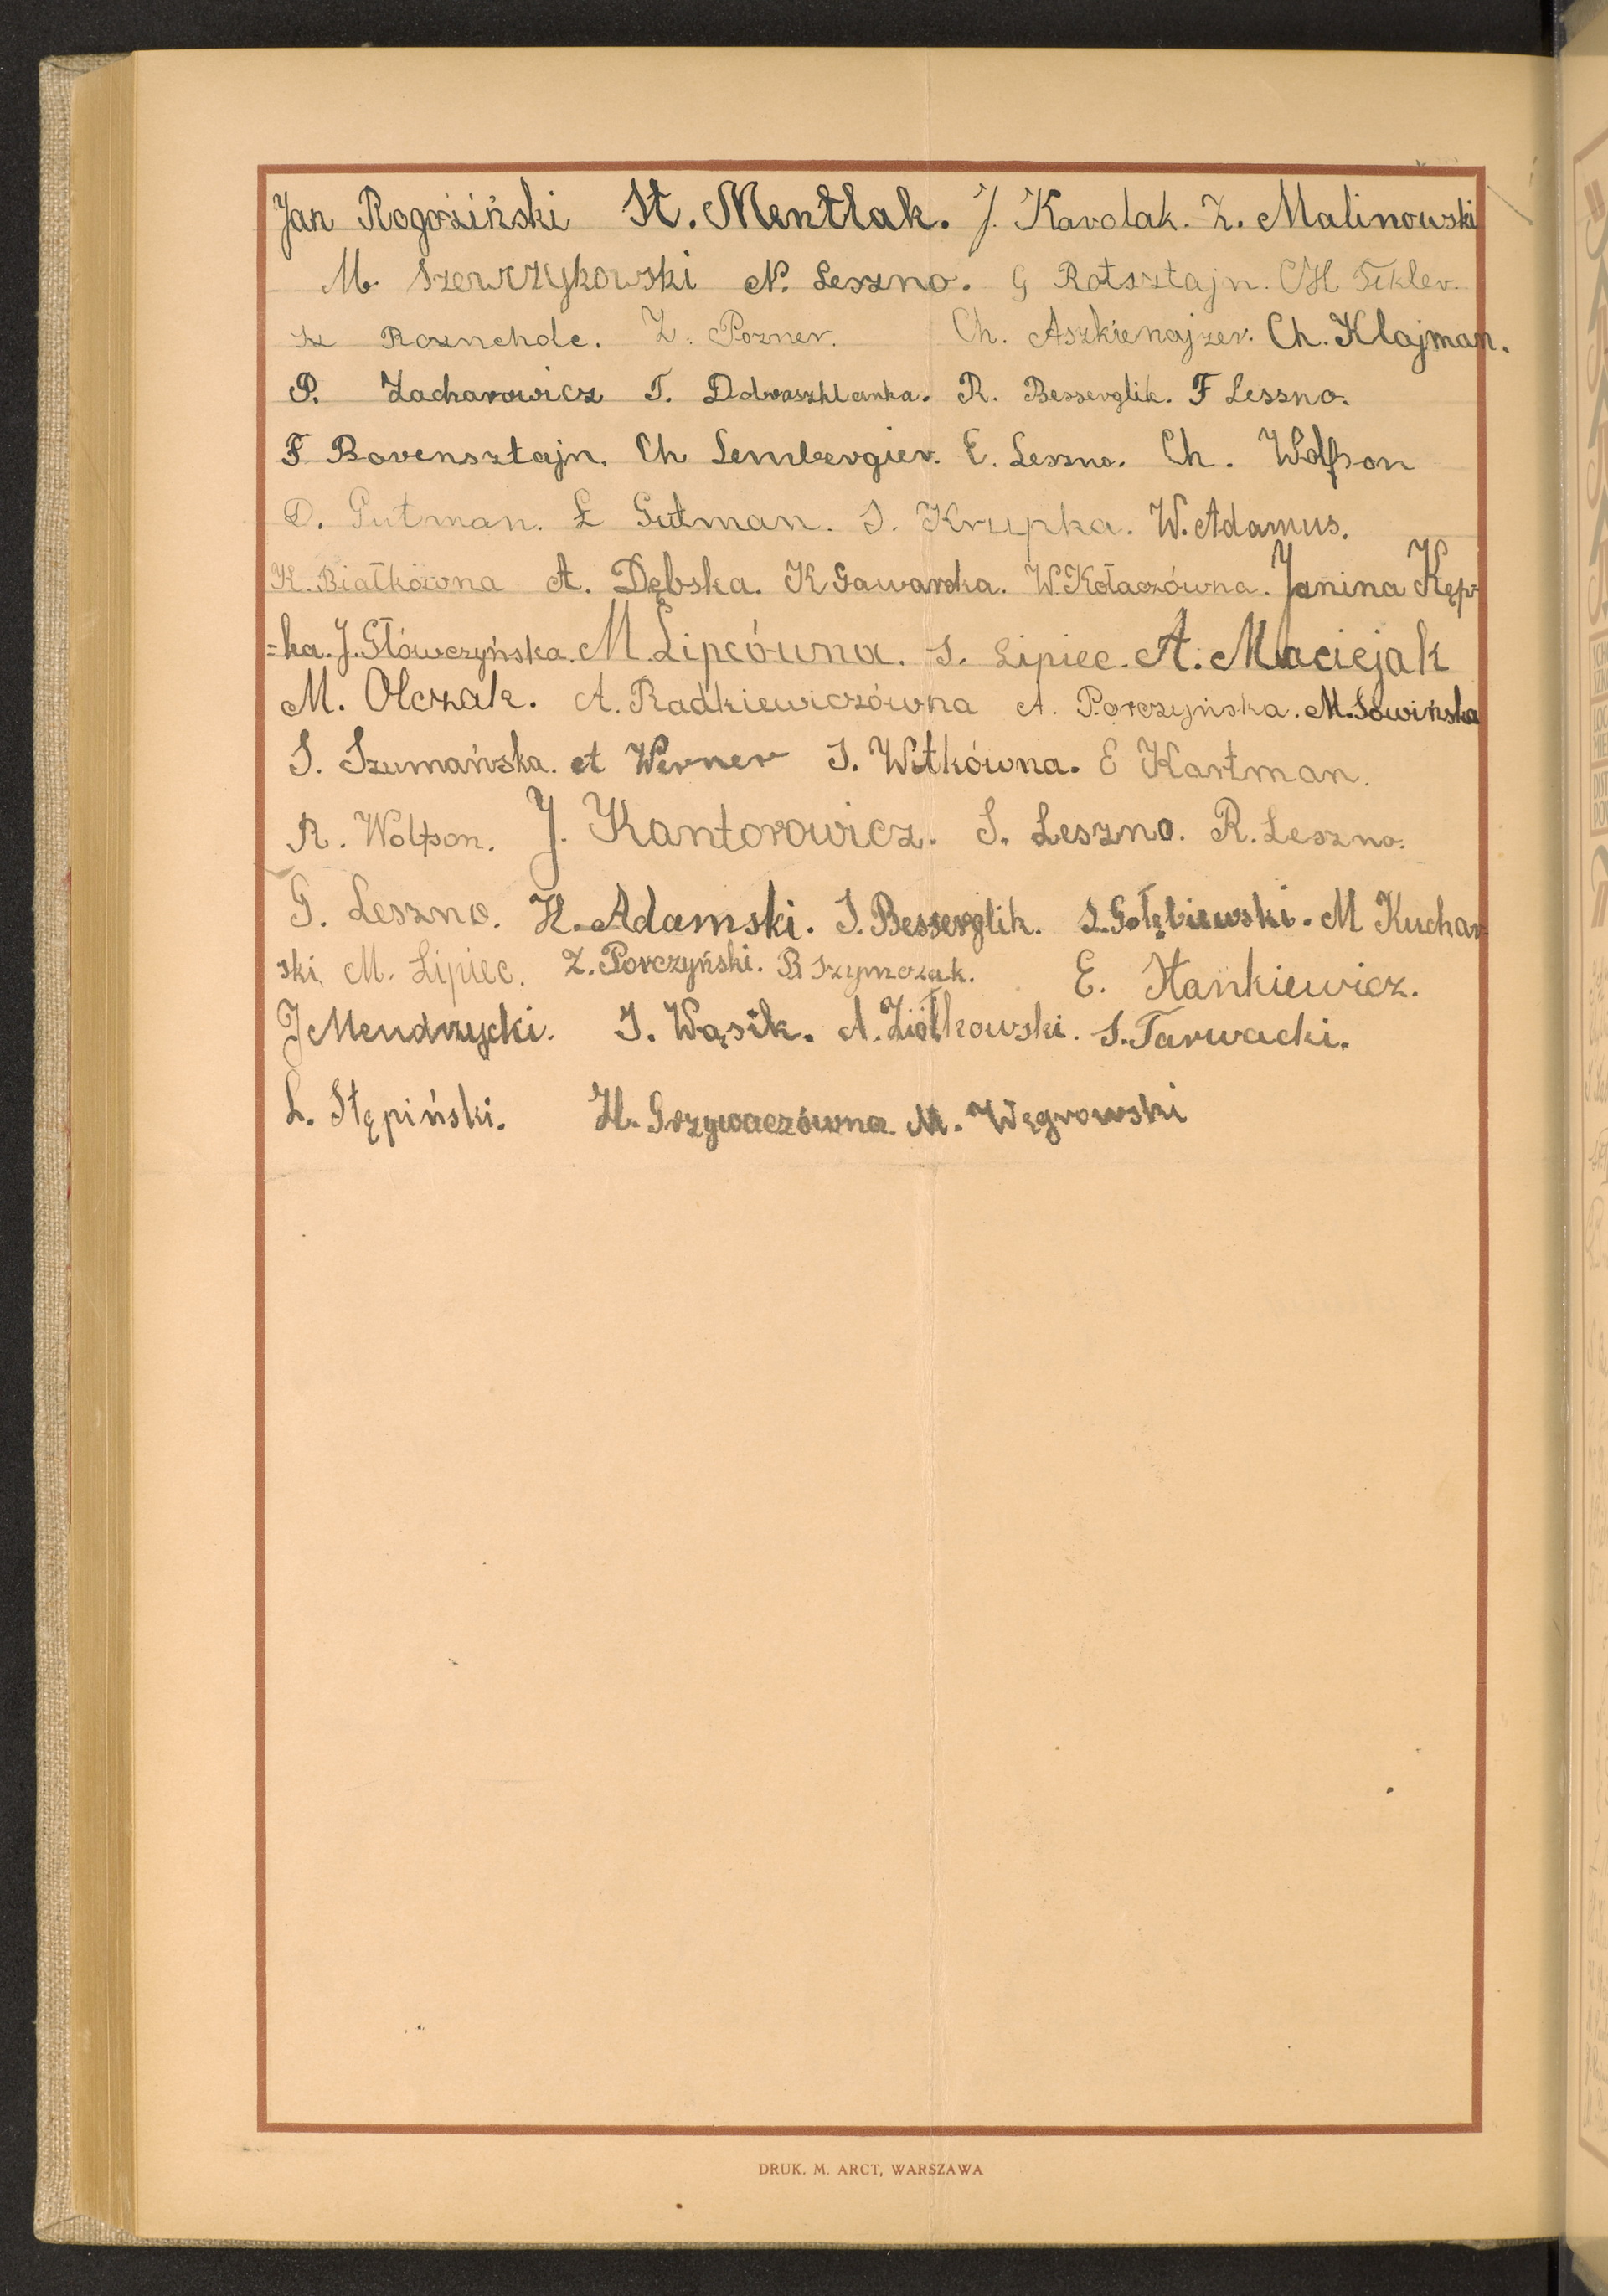 Jan Rogoziński St. Mentlak. J. Karolak. Z. Malinowski
M. Szewrzykowski N. Leszno. G Rotsztajn. CH Tekler.
Sz Roznchole. Z. Pozner. Ch. Aszkienajzer. Ch. Klajman.
P. Zacharowicz T. Dobraszklanka. R. Besserglik. F Leszno.
F Borensztajn. Ch Lembergier. E. Leszno. Ch. Wolfson
D. Gutman. E Gutman. S. Krupka. W. Adamus.
K. Białkówna A. Dębska. K Gawarska. W. Kołaczówna. Janina Kęp-
=ka. J. Główczyńska. M Lipcówna. S. Lipiec. A. Maciejak
M. Olczak. A. Radkiewiczówna A. Porczyńska. M. Sowińska
S. Szumańska. A Werner S. Witkówna. E Kartman.
R. Wolfson. J. Kantorowicz. S. Leszno. R. Leszno.
G. Leszno. H. Adamski. S. Besserglik. S. Gołębiewski. M Kuchar
ski M. Lipiec. Z. Porczyński. B Szymczak. E. Stankiewicz.
J Mendrzycki. J. Wąsik. A. Ziółkowski. S. Tarwacki.
L. Stępiński. H. Grzywaczówna. M. Węgrowski
DRUK. M. ARCT, WARSZAWA